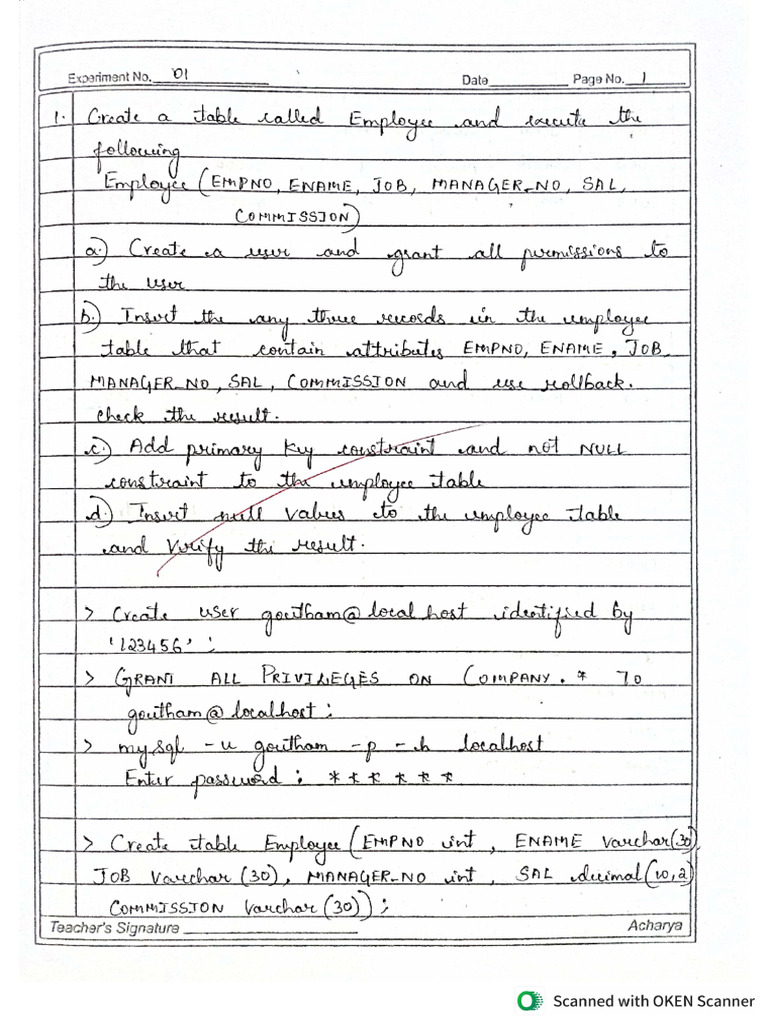 Experiment No. 01 Date Page No. 1
1. Create a table called Employee and execute the
following
Employee (EMPNO, ENAME, JOB, MANAGER_NO, SAL,
COMMISSION)
a.) Create a user and grant all permissions to
the user
b.) Insert the any three records in the employee
table that contain attributes EMPNO, ENAME, JOB
MANAGER_NO, SAL, COMMISSION and use rollback.
check the result.
c.) Add primary key constraint and not NULL
constraint to the employee table
d.) Insert null values to the employee table
and verify the result.
> Create user goutham@localhost identified by
'123456' ;
> GRANT ALL PRIVILEGES ON COMPANY.* TO
goutham@localhost;
> mysql -u goutham -p -h localhost
Enter password : * * * * * *
> Create table Employee (EMPNO int, ENAME varchar(30)
JOB varchar (30), MANAGER_NO int, SAL decimal(10,2)
COMMISSION varchar(30));
Teacher's Signature Acharya
Scanned with OKEN Scanner